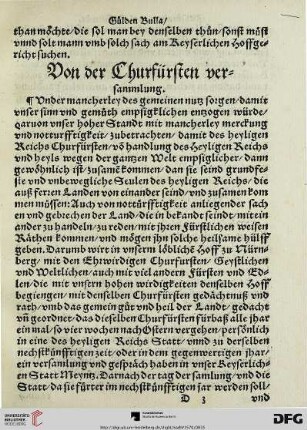 Gülden Bulla/
than möchte/ die sol man bey denselben thün/ sonst müst
vnnd solt mann vmb solch sach am Keyserlichen Hoffge-
richt suchen.
Von der Churfürsten ver-
samlung.
¶ Vnder mancherley des gemeinen nutz sorgen/ damit
vnser sinn vnd gemüth empsigklichen entzogen würde/
Reichs Churfürsten/ vō handlung des Heyligen Reichs
vnd heyls wegen der gantzen Welt empsiglicher/ dann
gewöhnlich ist/ zusamē kommen/ dan sie seind grundfe-
ste vnd vnbewegliche Seulen des heyligen Reichs/ die
auß ferren Landen von einander seind/ vnd zusamen kom
men müssen: Auch von notturfftigkeit anliegender sach
en vnd gebrechen der Land/ die in bekandt seindt/ mitein
ander zu handeln/ zu reden/ mit ihren Fürstlichen weisen
Räthen kommen/ vnd mögen ihn solche heilsame hülff
geben. Darumb wir in vnserm löbliche Hoff zu Nürn-
berg/ mit den Ehwirdigen Churfürsten/ Geystlichen
vnd Weltlichen/ auch mit viel andern Fürsten vnd Ed-
len/ die mit vnsern hohen wirdigkeiten denselben Hoff
begiengen/ mit denselben Churfürsten gedächtnuß vnd
rath/ vnd das gemein güt vnd heil der Land/ gedacht
vn geordnet/ das dieselben Churfürsten fürbaß alle jhar
ein mal/ so vier wochen nach Ostern vergehen/ persönlich
in eine des heyligen Reichs Statt/ vnnd zu derselben
nechstkünfftigen zeit/ oder in dem gegenwertigen jhar/
ein versamlung vnd gespräch haben in vnser Keyserlich-
en Statt Meyntz. Darnach der tag der samlung/ vnd die
Statt/ da sie fürter im nechstkünfftigen jar werden soll/
D 3 vnd
UNIVERSITÄTS-
BIBLIOTHEK
HEIDELBERG
DFG